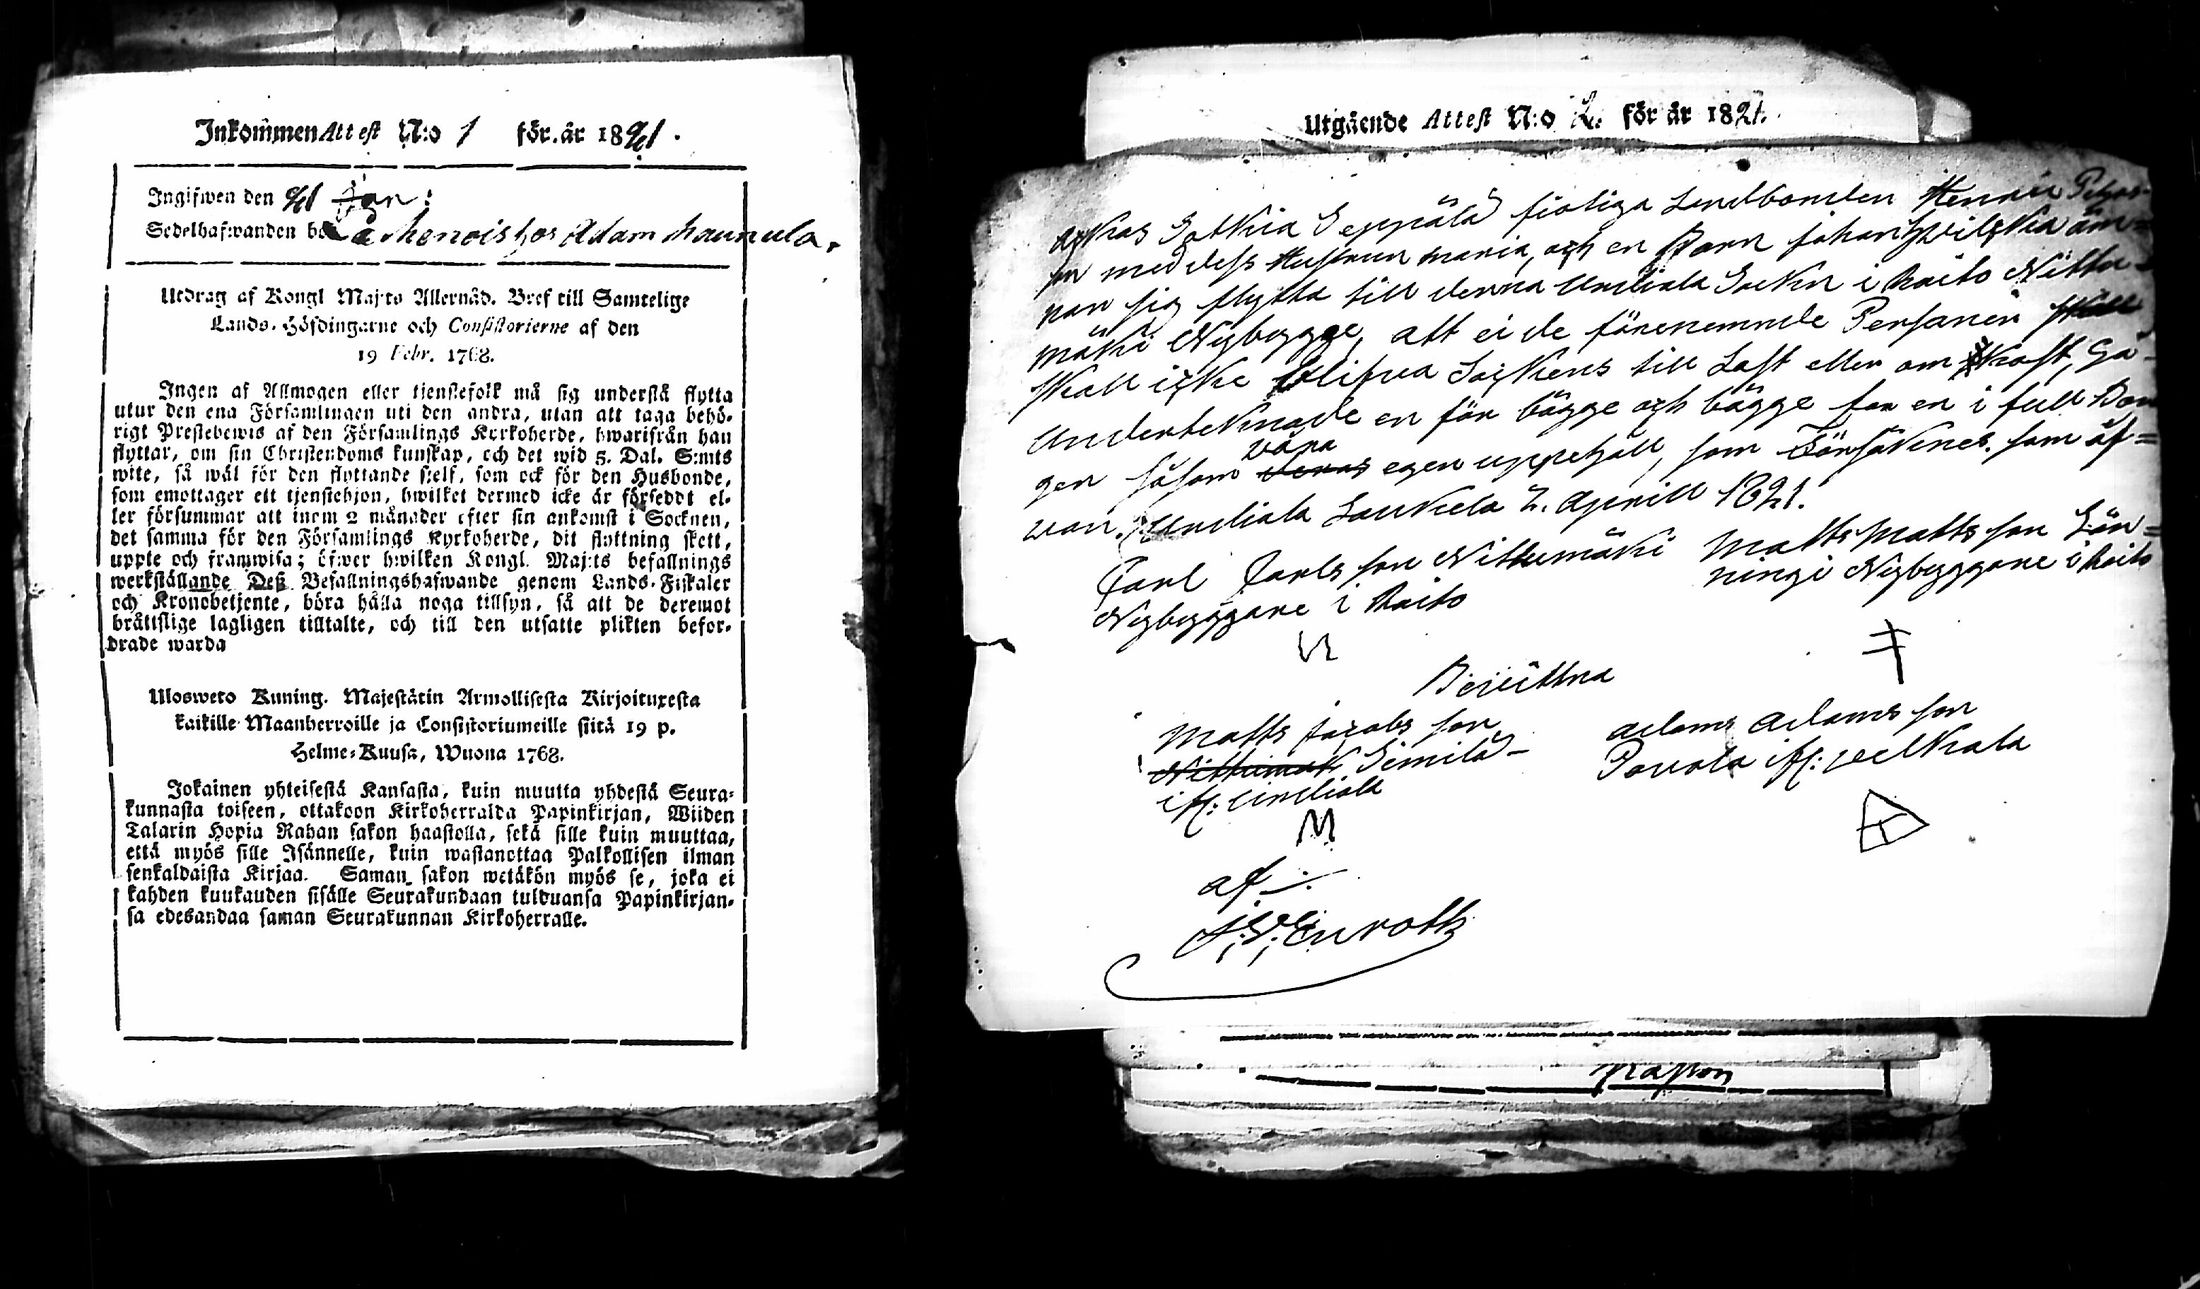 Inkommen Attest N:o 1 för år 1821.
Ingifwen den 21 Jan:
Sedelhafwanden bor hos Adam Maunula.
Utdrag af Kongl Maj:ts Allernåd. Bref till Samtelige
Lands-Höfdingarne och Consistorierne af den
19 Febr. 1768.
Ingen af Allmogen eller tjenstefolk må sig understå flytta
utur den ena Församlingen uti den andra, utan att taga behö-
rigt Prestebewis af den Församlings Kyrkoherde, hwarifrån han
flyttar, om sin Christendoms kunskap, och det wid 5. Dal. S:mts
wite, så wäl för den flyttande sjelf, som ock för den Husbonde,
som emottager ett tjenstehjon, hwilket dermed icke är försedt el-
ler försummar att inom 2 månader efter sin ankomst i Socknen,
det samma för den Församlings Kyrkoherde, dit flyttning skett,
uppte och framwisa; öfwer hwilken Kongl. Maj:ts befallnings
werkställande Deß Befallningshafwande genom Lands-Fiskaler
och Kronobetjente, böra hålla noga tillsyn, så att de deremot
bråttslige lagligen tilltalte, och till den utsatte plikten befor-
drade warda
Ulosweto Kuning. Majestätin Armollisesta Kirjoituxesta
kaikille Maanherroille ja Consistoriumeille siitä 19 p.
Helme-Kuusa, Wuona 1768.
Jokainen yhteisestä Kansasta, kuin muutta yhdestä Seura-
kunnasta toiseen, ottakoon Kirkoherralda Papinkirjan, Wiiden
Talarin Hopia Rahan sakon haastolla, sekä sille kuin muuttaa,
että myös sille Isännelle, kuin wastanottaa Palkollisen ilman
senkaldaista Kirjaa. Saman sakon wetäkön myös se, joka ei
kahden kuukauden sisälle Seurakundaan tulduansa Papinkirjan-
sa edesandaa saman Seurakunnan Kirkoherralle.
Utgående Attest N:o 2. för år 1821.
Seppälä Landbonden Henric
med dess Hustrun Maria, och en Barn Johan, hvilka äm-
nar sig flytta till denna Socken i Raito Nittu-
mäki Nybygge, att ei de förenemnde Personer
skall icke blifva Sockens till Last eller om kost, Gå
Underteknade en för bägge och bägge for en i full Bor
gen såsom våra egen uppehäll, som Försäkenes som äf=
wan. Laukela 2. Aprill 1821.
Carl Carls son Nittumäki
Nybyggare i Raito
Matts Matts son Hän=
ningi Nybyggare i Raito
Matts Jacobs son
Similä
Adam Adams son
af